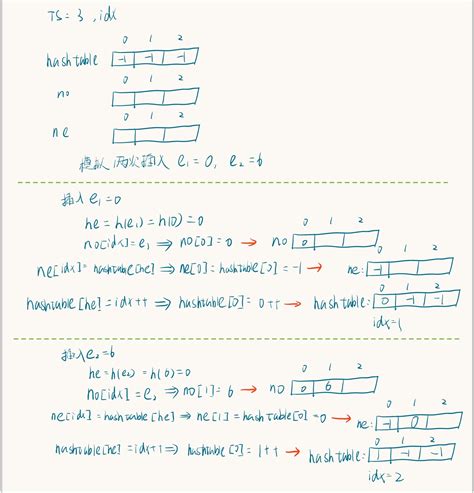 TS=3, idx
0 1 2
hashtable -1 -1 -1
0 1 2
no
0 1 2
ne
模拟两次插入 e₁=0, e₂=6
插入e₁=0
he=h(e₁)=h(0)=0
0 1 2
no[idx]=e₁ ⇒ no[0]=0 → no 0
0 1 2
ne[idx]=hashtable[he] ⇒ ne[0]=hashtable[0]=-1 → ne: -1
0 1 2
hashtable[he]=idx++ ⇒ hashtable[0]=0++ → hashtable: 0 -1 -1
idx=1
插入e₂=6
he=h(e₂)=h(0)=0
0 1 2
no[idx]=e₂ ⇒ no[1]=6 → no 0 6
0 1 2
ne[idx]=hashtable[he] ⇒ ne[1]=hashtable[0]=0 → ne: -1 0
0 1 2
hashtable[he]=idx+1 ⇒ hashtable[0]=1++ → hashtable: 1 -1 -1
idx=2